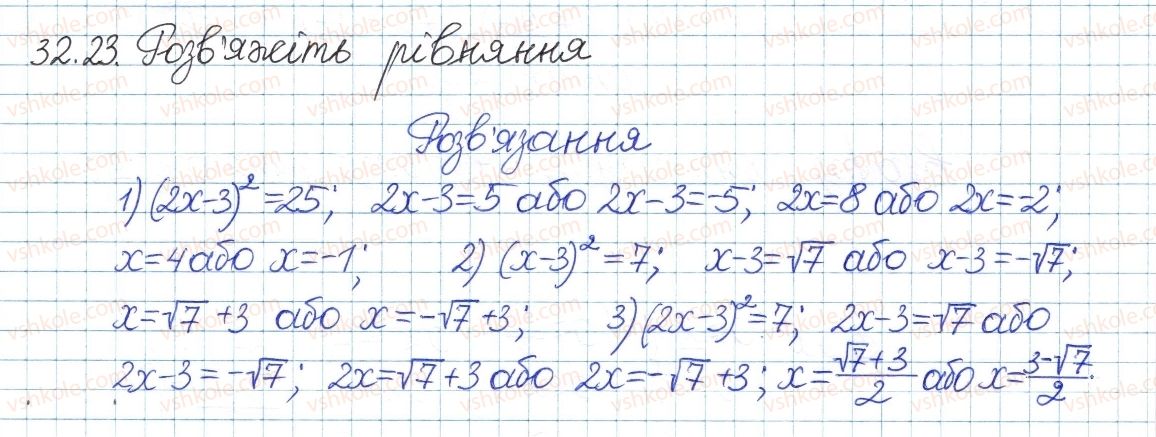 32.23. Розв'яжіть рівняння
Розв'язання
1) (2x-3)²=25; 2x-3=5 або 2x-3=-5; 2x=8 або 2x=-2;
x=4 або x=-1; 2) (x-3)²=7; x-3=√7 або x-3=-√7;
x=√7+3 або x=-√7+3; 3) (2x-3)²=7; 2x-3=√7 або
2x-3=-√7; 2x=√7+3 або 2x=-√7+3; x=(√7+3)/2 або x=(3-√7)/2.